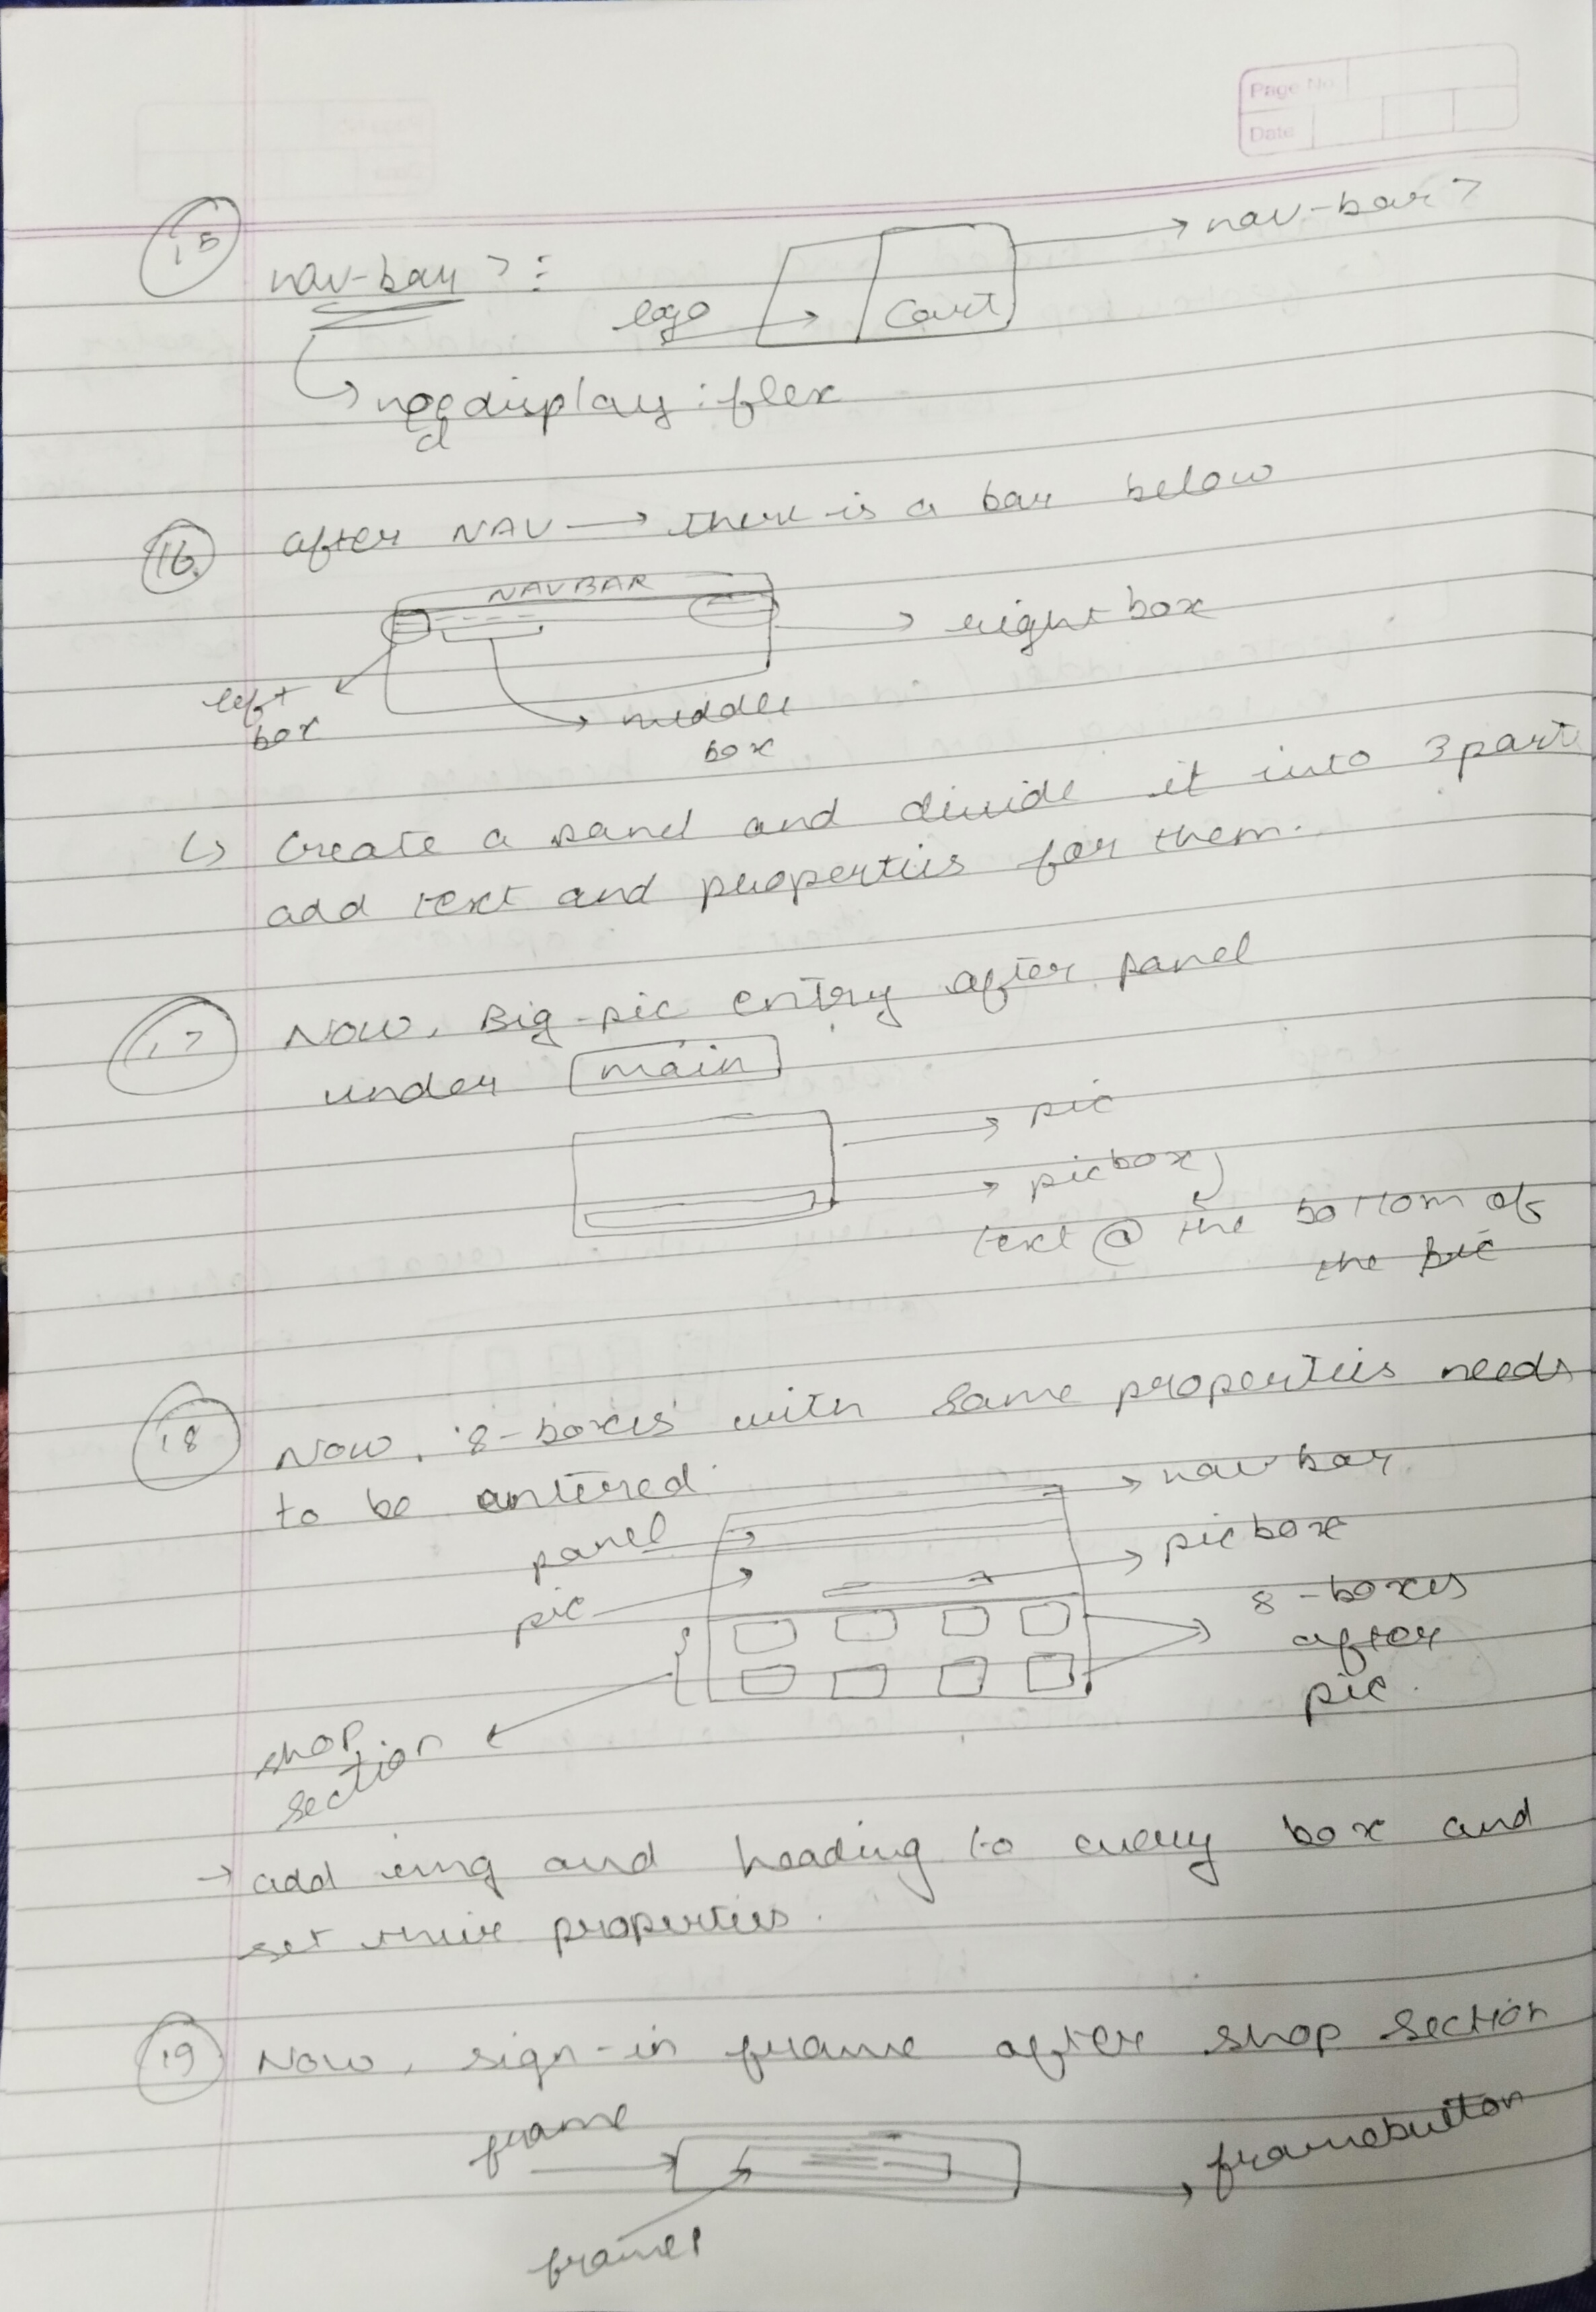 Page No
Date
15 nav-bar 7 :
logo
Cart
nav-bar 7
need display : flex
16. after NAV → there is a bar below
NAVBAR
right box
left box
middle box
↳ Create a panel and divide it into 3 part
add text and properties for them.
17 Now, Big-pic entry after panel
under main
pic
picbox
text @ the bottom of
the pic
18 Now, 8-boxes with same properties needs
to be entered.
nav bar
panel
picbox
pic
8-boxes
after
pic.
shop
section
→ add img and heading to every box and
set their properties.
19 Now, sign-in frame after shop section
frame
framebutton
frame1